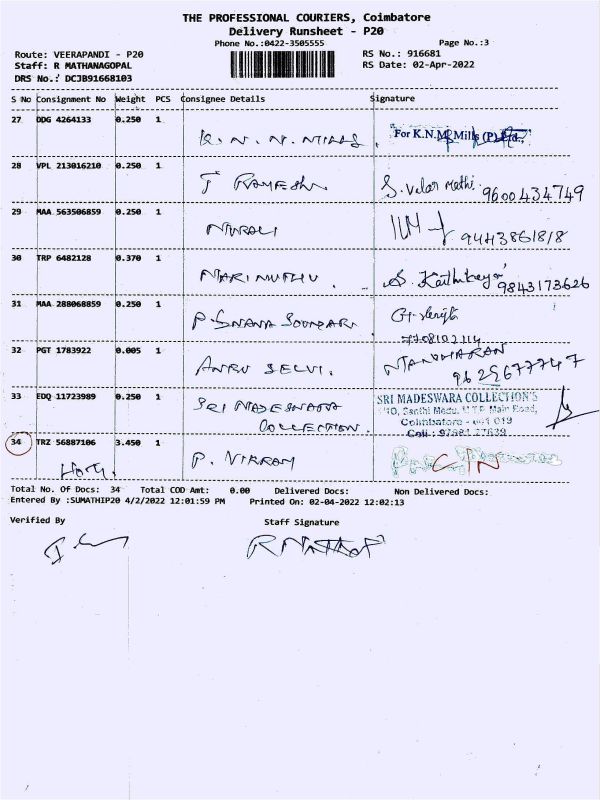 THE PROFESSIONAL COURIERS, Coimbatore
Delivery Runsheet - P20
Phone No.:0422-3505555 Page No.:3
Route: VEERAPANDI - P20 RS No.: 916681
Staff: R MATHANAGOPAL RS Date: 02-Apr-2022
DRS No.: DCJB91668103
S No Consignment No Weight PCS Consignee Details Signature
27 DDG 4264133 0.250 1
K.N.M. MILLS. For K.N.M. Mills (P) Ltd.,
28 VPL 213016210 0.250 1
T RAMESH S. Velar Mathi 9600434749
29 MAA 563506859 0.250 1
MURALI 9443861818
30 TRP 6482128 0.370 1
MARIMUTHU S. Karthikeyan 9843173626
31 MAA 288068859 0.250 1
P. GNANA SOUNDARI
7708102114
32 PGT 1783922 0.005 1
ANBU SELVI. MANOHARAN
9629677747
33 EDQ 11723989 0.250 1
SRI MADESWARA COLLECTION. SRI MADESWARA COLLECTION'S
Main Road,
Coimbatore - 641 019
Cell :
34 TRZ 56887106 3.450 1
P. VIKRAM
Total No. Of Docs: 34 Total COD Amt: 0.00 Delivered Docs: Non Delivered Docs:
Entered By :SUMATHIP20 4/2/2022 12:01:59 PM Printed On: 02-04-2022 12:02:13
Verified By Staff Signature